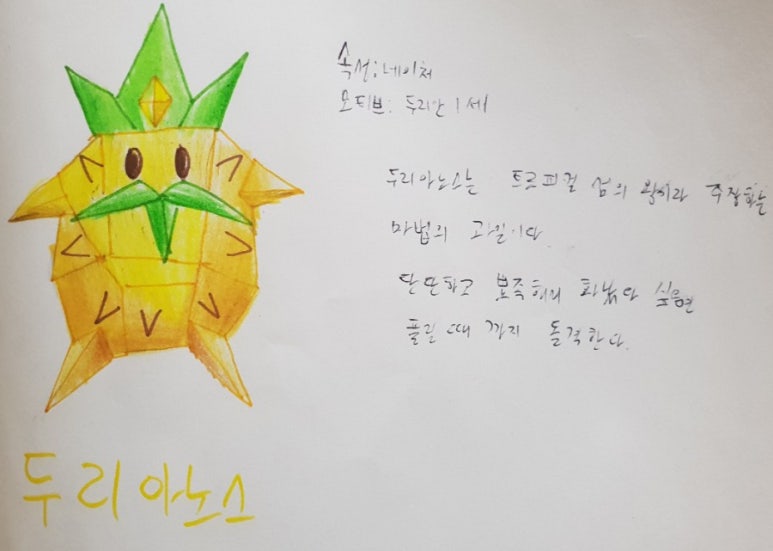 속성:네이쳐
모티브: 두리안 1세
두리아노스는 트로피컬 섬의 왕이라 주장하는
마법의 과일이다.
단단하고 뾰족해서 화났다 싶으면
풀릴 때 까지 돌격한다.
두리아노스